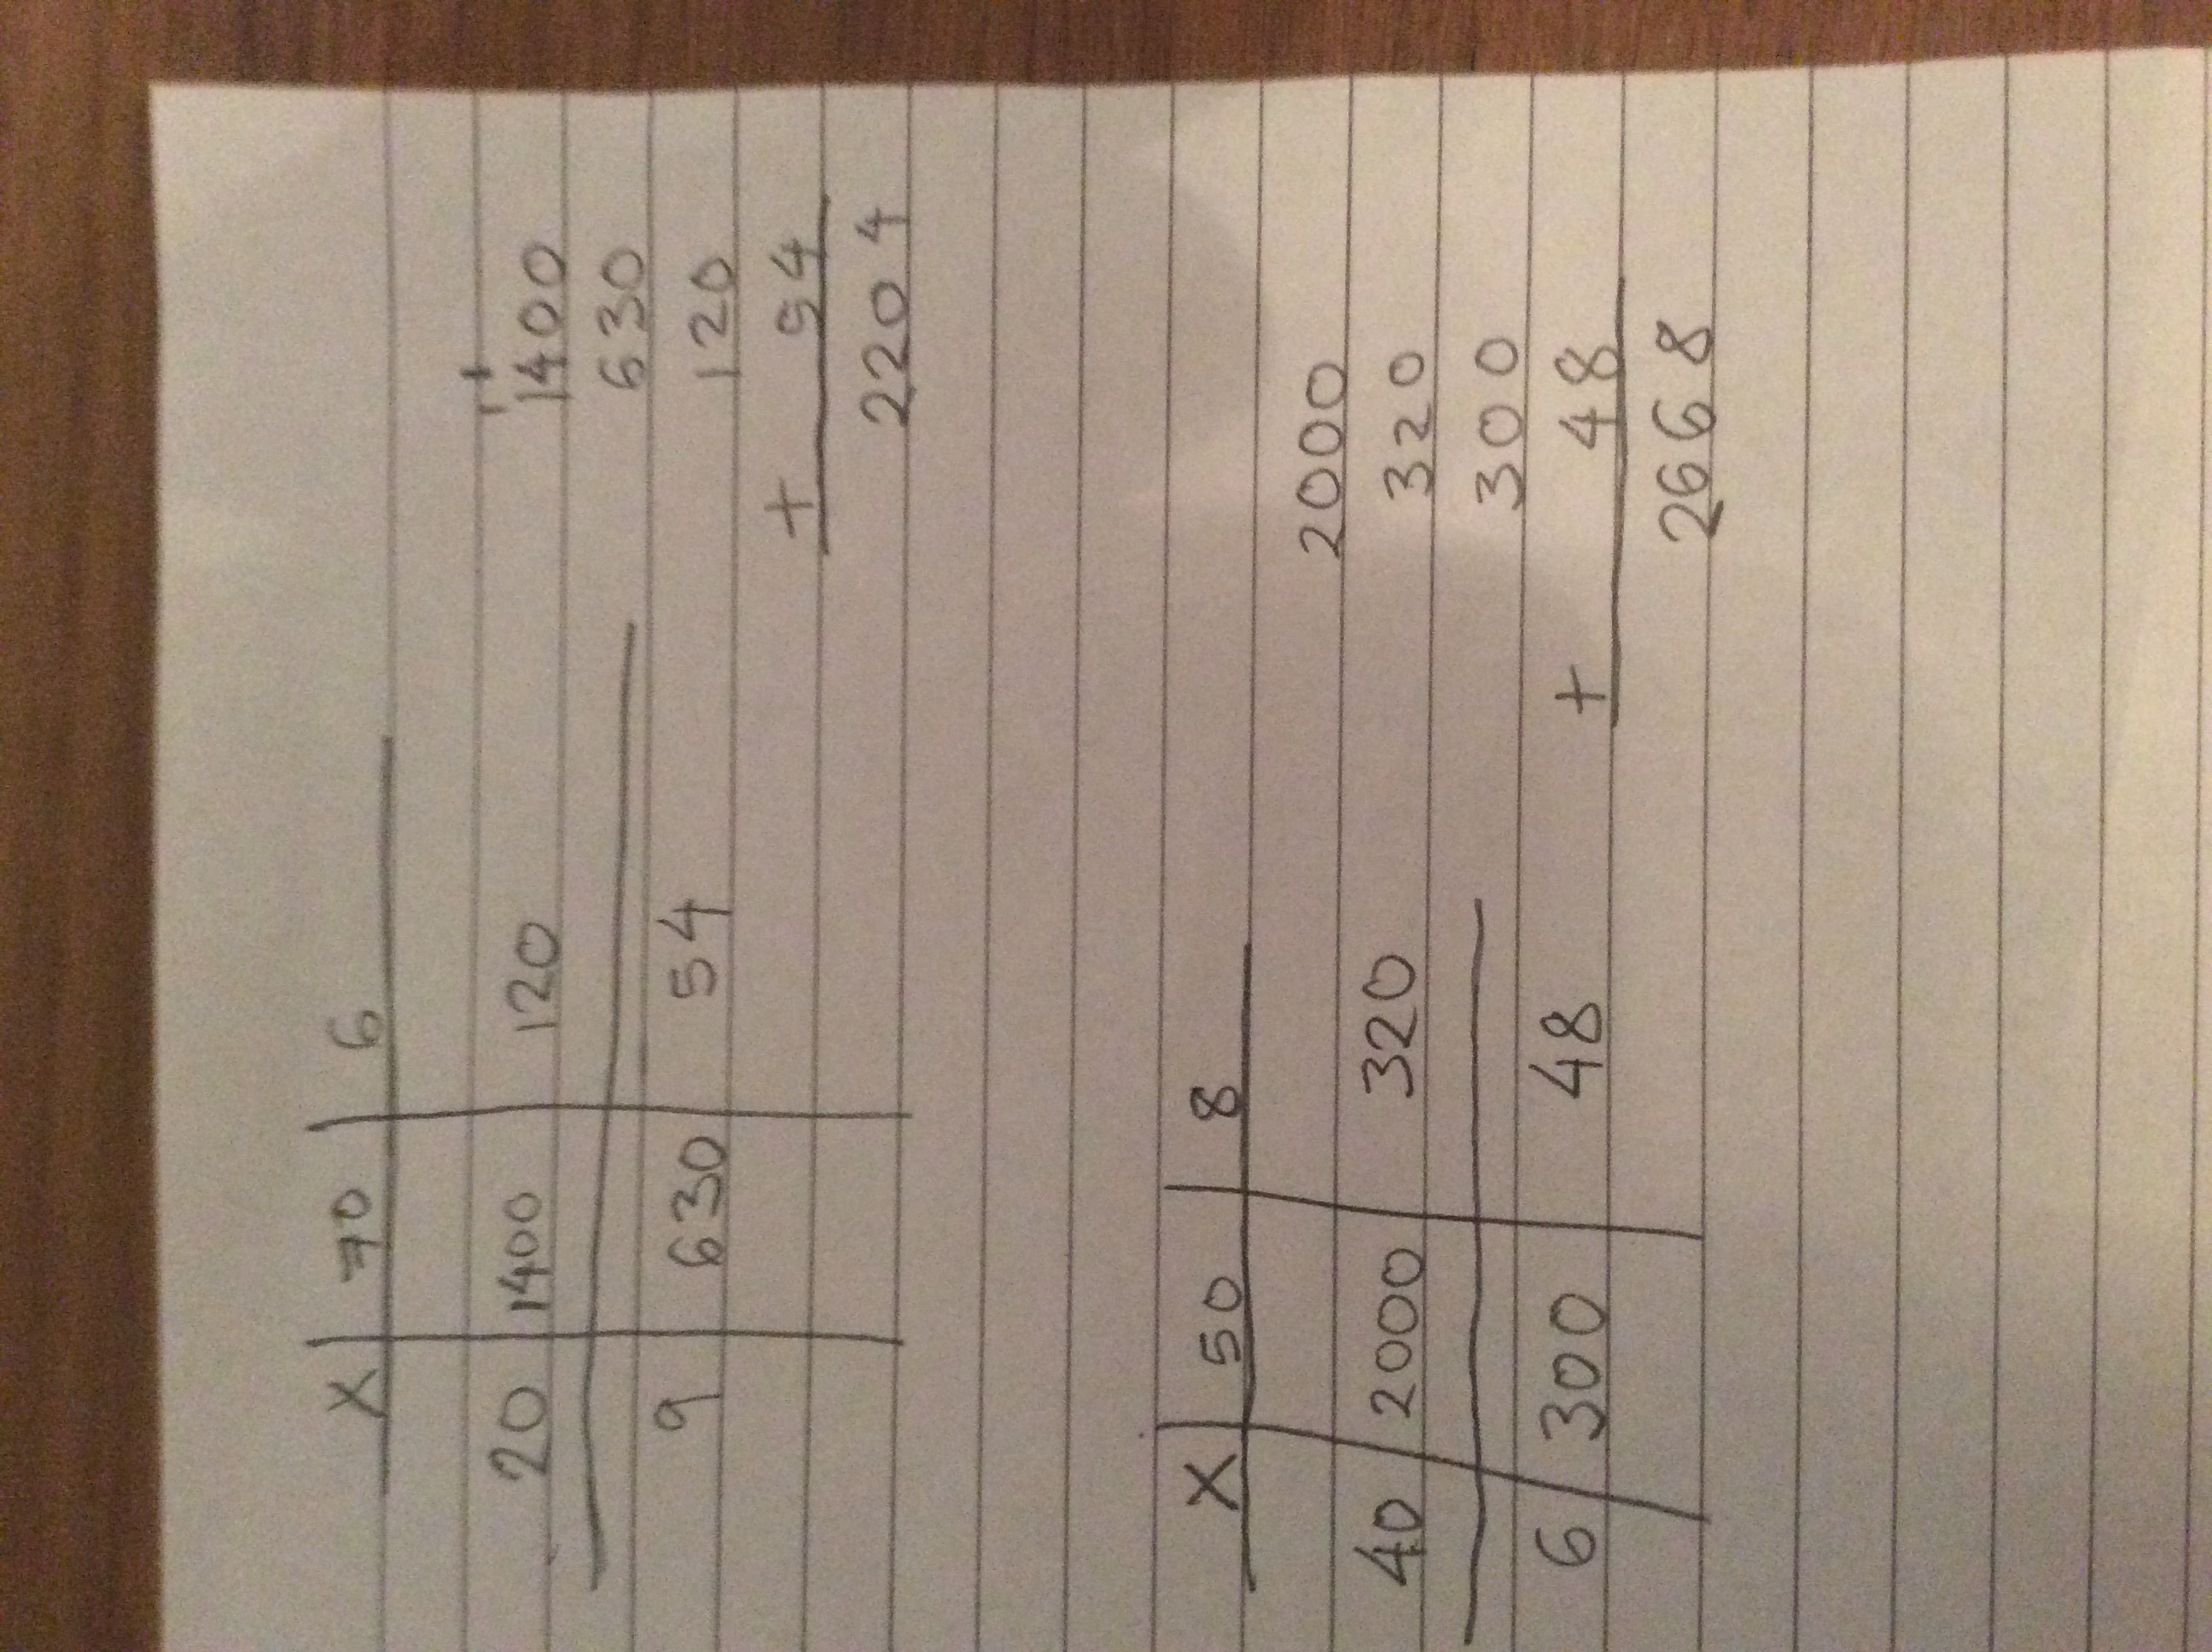 X 70 6
20 1400 120
9 630 54
11
1400
630
120
+ 54
2204
X 50 8
40 2000 320
6 300 48
2000
320
300
+ 48
2668